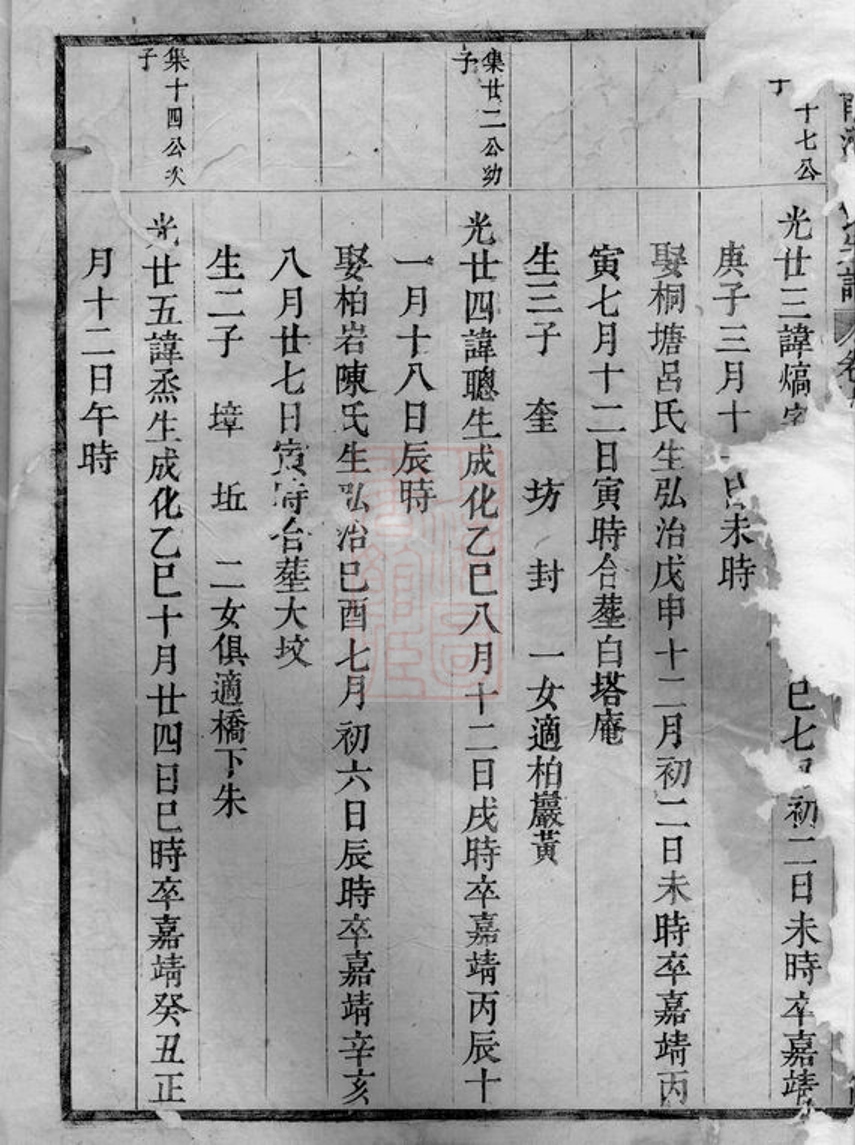 十七公
子
光廿三諱熇字
巳七月初二日未時卒嘉靖
庚子三月十一日未時
娶桐塘呂氏生弘治戊申十二月初二日未時卒嘉靖丙
寅七月十二日寅時合塟白塔庵
生三子 奎 坊 封 一女適柏巖黃
集廿二公幼
子
光廿四諱聰生成化乙巳八月十二日戌時卒嘉靖丙辰十
一月十八日辰時
娶柏岩陳氏生弘治巳酉七月初六日辰時卒嘉靖辛亥
八月廿七日寅時合塟大坟
生二子 墇 坵 二女俱適橋下朱
集十四公次
子
光廿五諱烝生成化乙巳十月廿四日巳時卒嘉靖癸丑正
月十二日午時